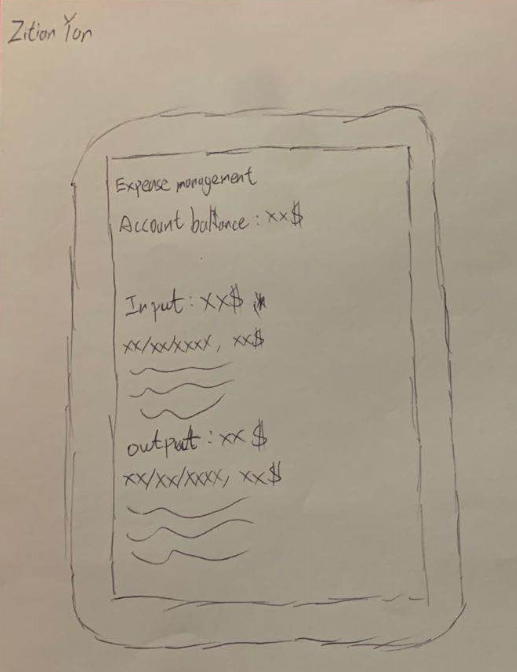 Zitian Yan
Expense management
Account balance : xx$
Input : xx$
xx/xx/xxxx, xx$
output : xx $
xx/xx/xxxx, xx$